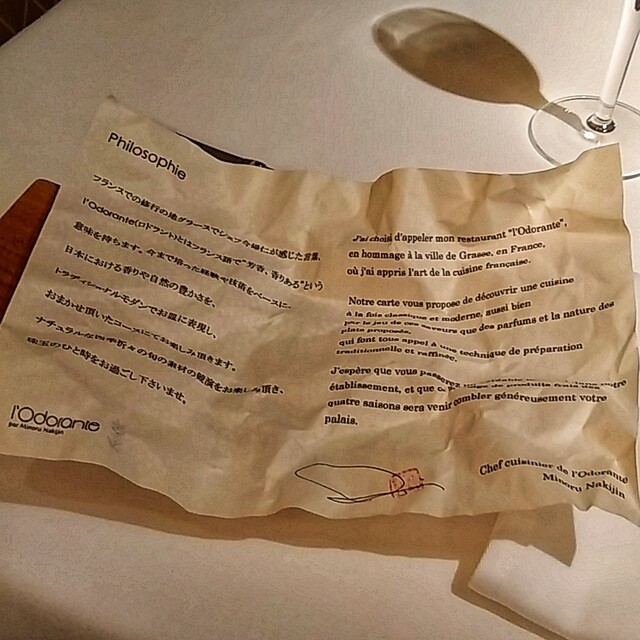 Philosophie
フランスでの修行の地グラースでシェフ今帰仁が感じた言葉、
l'Odorante(ロドラント)とはフランス語で"芳香、香りある"という
意味を持ちます。今まで培った経験や技術をベースに、
日本における香りや自然の豊かさを、
トラディショナルモダンでお皿に表現し、
おまかせ頂いたコースにてお楽しみ頂きます。
ナチュラルな四季折々の旬の素材の競演をお楽しみ頂き、
珠玉のひと時をお過ごし下さいませ。
l'Odorante
par Minoru Nakijin
J'ai choisi d'appeler mon restaurant "l'Odorante",
en hommage à la ville de Grasse, en France,
où j'ai appris l'art de la cuisine française.
Notre carte vous propose de découvrir une cuisine
à la fois classique et moderne, aussi bien
par le jeu de ces saveurs que des parfums et la nature des
plats proposés,
qui font tous appel à une technique de préparation
traditionnelle et raffinée.
J'espère que vous passerez
établissement, et que produits votre
quatre saisons sera venir combler généreusement votre
palais.
Chef cuisinier de l'Odorante
Minoru Nakijin